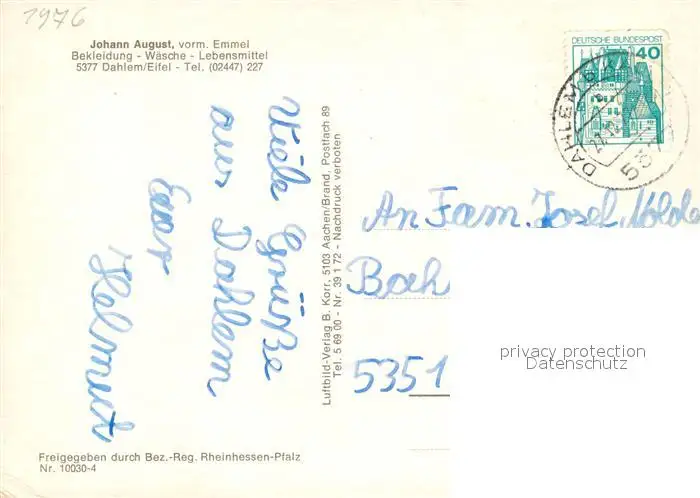 1976
Johann August, vorm. Emmel
Bekleidung - Wäsche - Lebensmittel
5377 Dahlem/Eifel - Tel. (02447) 227
DEUTSCHE BUNDESPOST
40
DAHLEM
537
Viele Grüße
aus Dahlem
Euer
Helmut
Luftbild-Verlag B. Korr, 5103 Aachen/Brand, Postfach 89
Tel. 5 69 00 - Nr. 39 1 72 - Nachdruck verboten
An Fam. Josef Nolde
Bach
5351
privacy protection
Datenschutz
Freigegeben durch Bez.-Reg. Rheinhessen-Pfalz
Nr. 10030-4